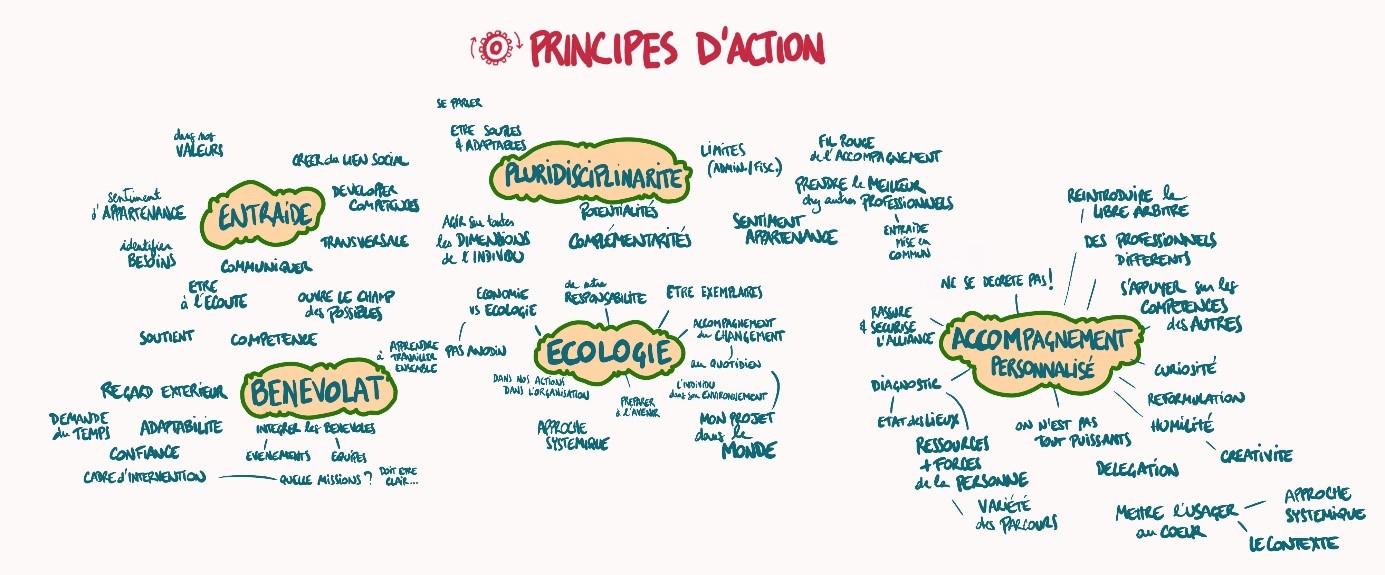 PRINCIPES D'ACTION
dans nos
VALEURS
CREER du LIEN SOCIAL
sentiment
d'APPARTENANCE
ENTRAIDE
DEVELOPER
COMPETENCES
identifier
BESOINS
TRANSVERSALE
COMMUNIQUER
ETRE
à l'ECOUTE
OUVRE LE CHAMP
des POSSIBLES
SOUTIENT
COMPETENCE
SE PARLER
ETRE SOUPLES
& ADAPTABLES
PLURIDISCIPLINARITE
LIMITES
(ADMIN./FISC.)
FIL ROUGE
de l'ACCOMPAGNEMENT
PRENDRE le MEILLEUR
des autres PROFESSIONNELS
ENTRAIDE
MISE en
COMMUN
POTENTIALITÉS
COMPLÉMENTARITÉS
SENTIMENT
APPARTENANCE
AGIR sur toutes
les DIMENSIONS
de l'INDIVIDU
BENEVOLAT
à APPRENDRE
TRAVAILLER
ENSEMBLE
REGARD EXTERIEUR
DEMANDE
du TEMPS
ADAPTABILITE
INTEGRER les BENEVOLES
EVÉNEMENTS
EQUIPES
CONFIANCE
CADRE d'INTERVENTION
QUELLE MISSIONS ?
DOIT ETRE
CLAIR...
ECONOMIE
vs ECOLOGIE
PAS ANODIN
de notre
RESPONSABILITE
ETRE EXEMPLAIRES
ECOLOGIE
ACCOMPAGNEMENT
du CHANGEMENT
au QUOTIDIEN
DANS NOS ACTIONS
DANS L'ORGANISATION
PREPARER
à l'AVENIR
L'INDIVIDU
dans son ENVIRONNEMENT
APPROCHE
SYSTEMIQUE
MON PROJET
dans le
MONDE
REINTRODUIRE le
LIBRE ARBITRE
DES PROFESSIONNELS
DIFFERENTS
NE SE DECRETE PAS!
S'APPUYER sur les
COMPETENCES
des AUTRES
RASSURE
& SECURISE
L'ALLIANCE
ACCOMPAGNEMENT
PERSONNALISÉ
CURIOSITÉ
DIAGNOSTIC
REFORMULATION
ETAT des LIEUX
ON N'EST PAS
TOUT PUISSANTS
HUMILITÉ
RESSOURCES
+ FORCES
de la PERSONNE
CREATIVITE
DELEGATION
VARIÉTÉ
des PARCOURS
METTRE l'USAGER
au COEUR
APPROCHE
SYSTEMIQUE
LE CONTEXTE